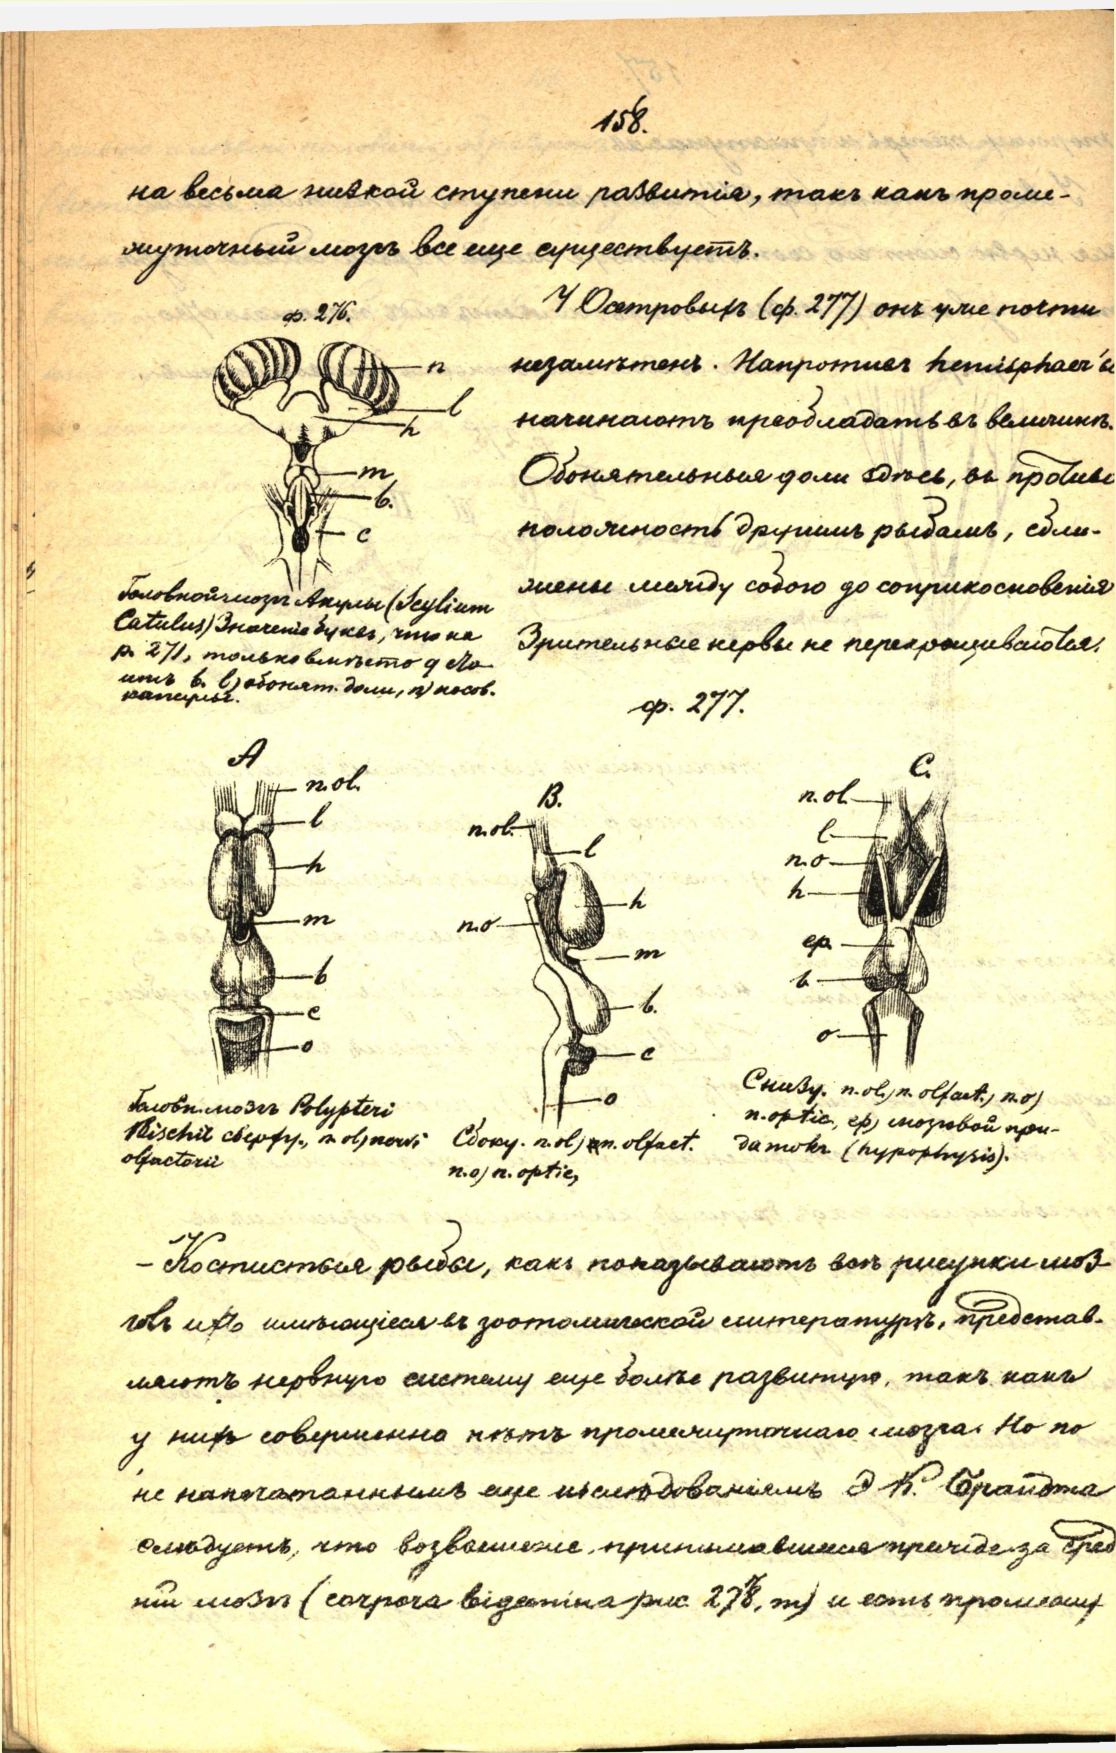 158.
на весьма низкой ступени развитія, такъ какъ проме-
жуточный мозгъ все еще существуетъ.
ф. 276.
n
l
h
m
b.
c
Головной мозгъ Акулы (Scylium
Catulus) Значеніе буквъ, что на
р. 271, только вмѣсто q сто
итъ b. l) обонят. доли, n) носов.
капсулы.
У Осетровыхъ (ф. 277) онъ уже почти
незамѣтенъ. Напротивъ hemisphaer'ы
начинаютъ преобладать въ величинѣ.
Обонятельныя доли здѣсь, въ противу
положность другимъ рыбамъ, сбли-
жены между собою до соприкосновенія
Зрительные нервы не перекрещиваются.
ф. 277.
A
n.ol.
l
h
m
b
c
o
Головн. мозгъ Polypteri
Bischii сверху., n.ol) nervi
olfactorii
B.
n.ol.
l
h
n.o
m
b.
c
o
Сбоку. n.ol) n. olfact.
n.o) n. optic,
C.
n.ol.
l
n.o
h
ep.
b
o
Снизу. n.ol.) n. olfact., n.o)
n. optic., ep) мозговой при-
датокъ (hypophysis).
– Костистыя рыбы, какъ показываютъ всѣ рисунки моз-
говъ ихъ имѣющіеся въ зоотомической литературѣ, представ-
ляютъ нервную систему еще болѣе развитую, такъ какъ
у нихъ совершенно нѣтъ промежуточнаго мозга. Но по
не напечатаннымъ еще изслѣдованіямъ Э К. Брандта
слѣдуетъ, что возвышеніе, принимавшееся прежде за сред
ній мозгъ (corpora bigemina рис. 278, m) и есть промежу